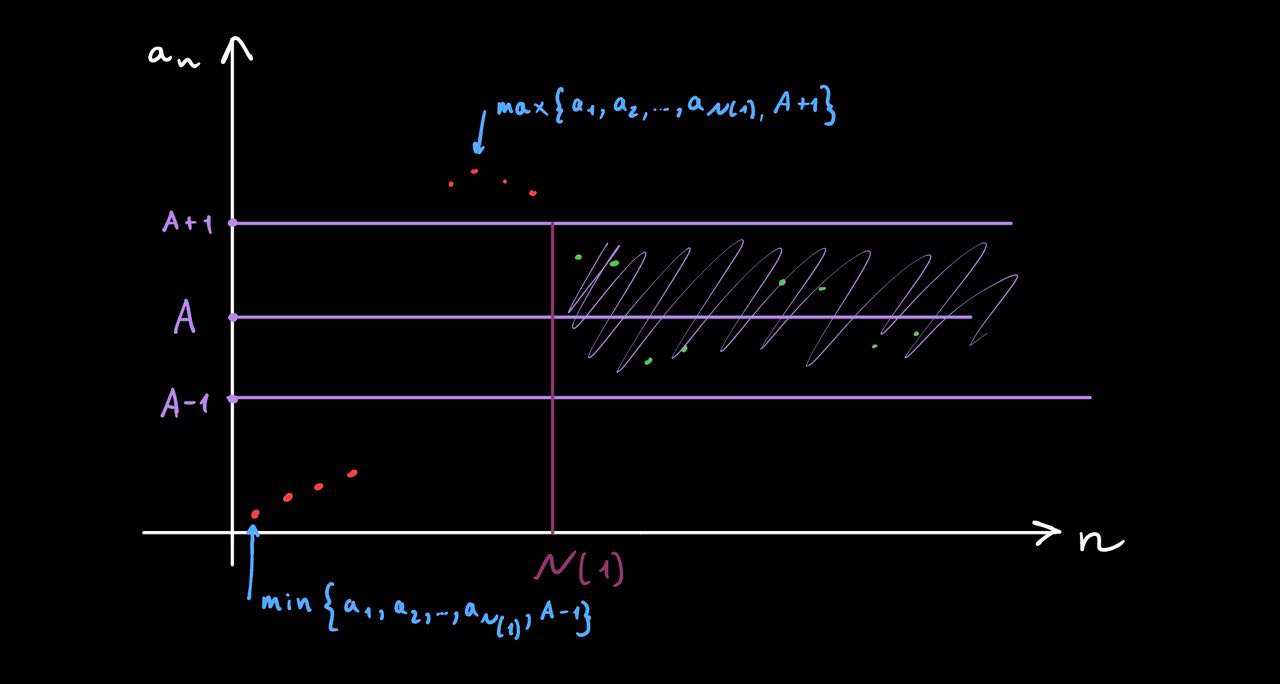 aₙ
max{a₁, a₂, ..., a_N(1), A+1}
A+1
A
A-1
n
N(1)
min{a₁, a₂, ..., a_N(1), A-1}